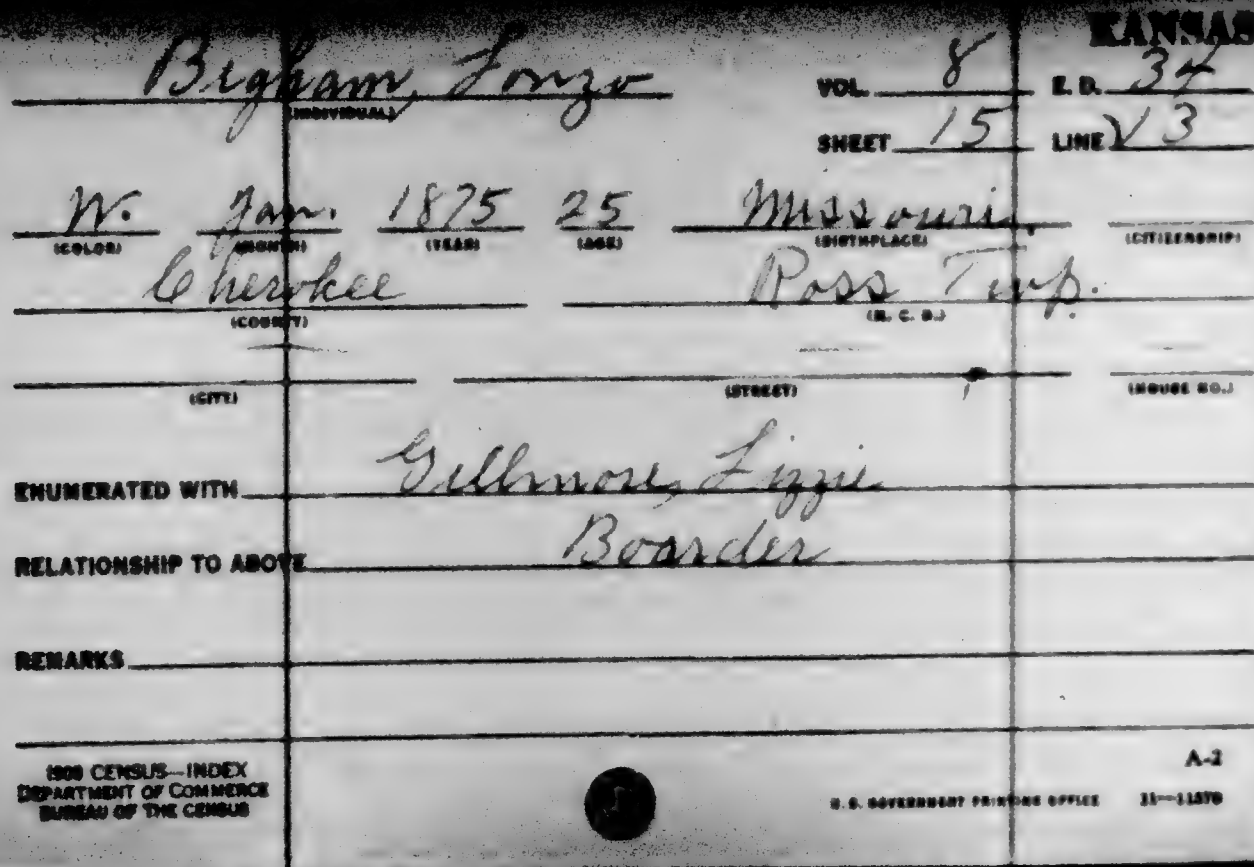 KANSAS
Bigham, Lonzo VOL. 8 E. D. 34
(INDIVIDUAL)
SHEET 15 LINE 13
W. Jan. 1875 25 Missouri
(COLOR) (MONTH) (YEAR) (AGE) (BIRTHPLACE) (CITIZENSHIP)
Cherokee Ross Twp.
(COUNTY) (M. C. D.)
(CITY) (STREET) (HOUSE NO.)
ENUMERATED WITH Gillmore, Lizzie
RELATIONSHIP TO ABOVE Boarder
REMARKS
1900 CENSUS—INDEX
DEPARTMENT OF COMMERCE
BUREAU OF THE CENSUS
A-2
U.S. GOVERNMENT PRINTING OFFICE 11—11570